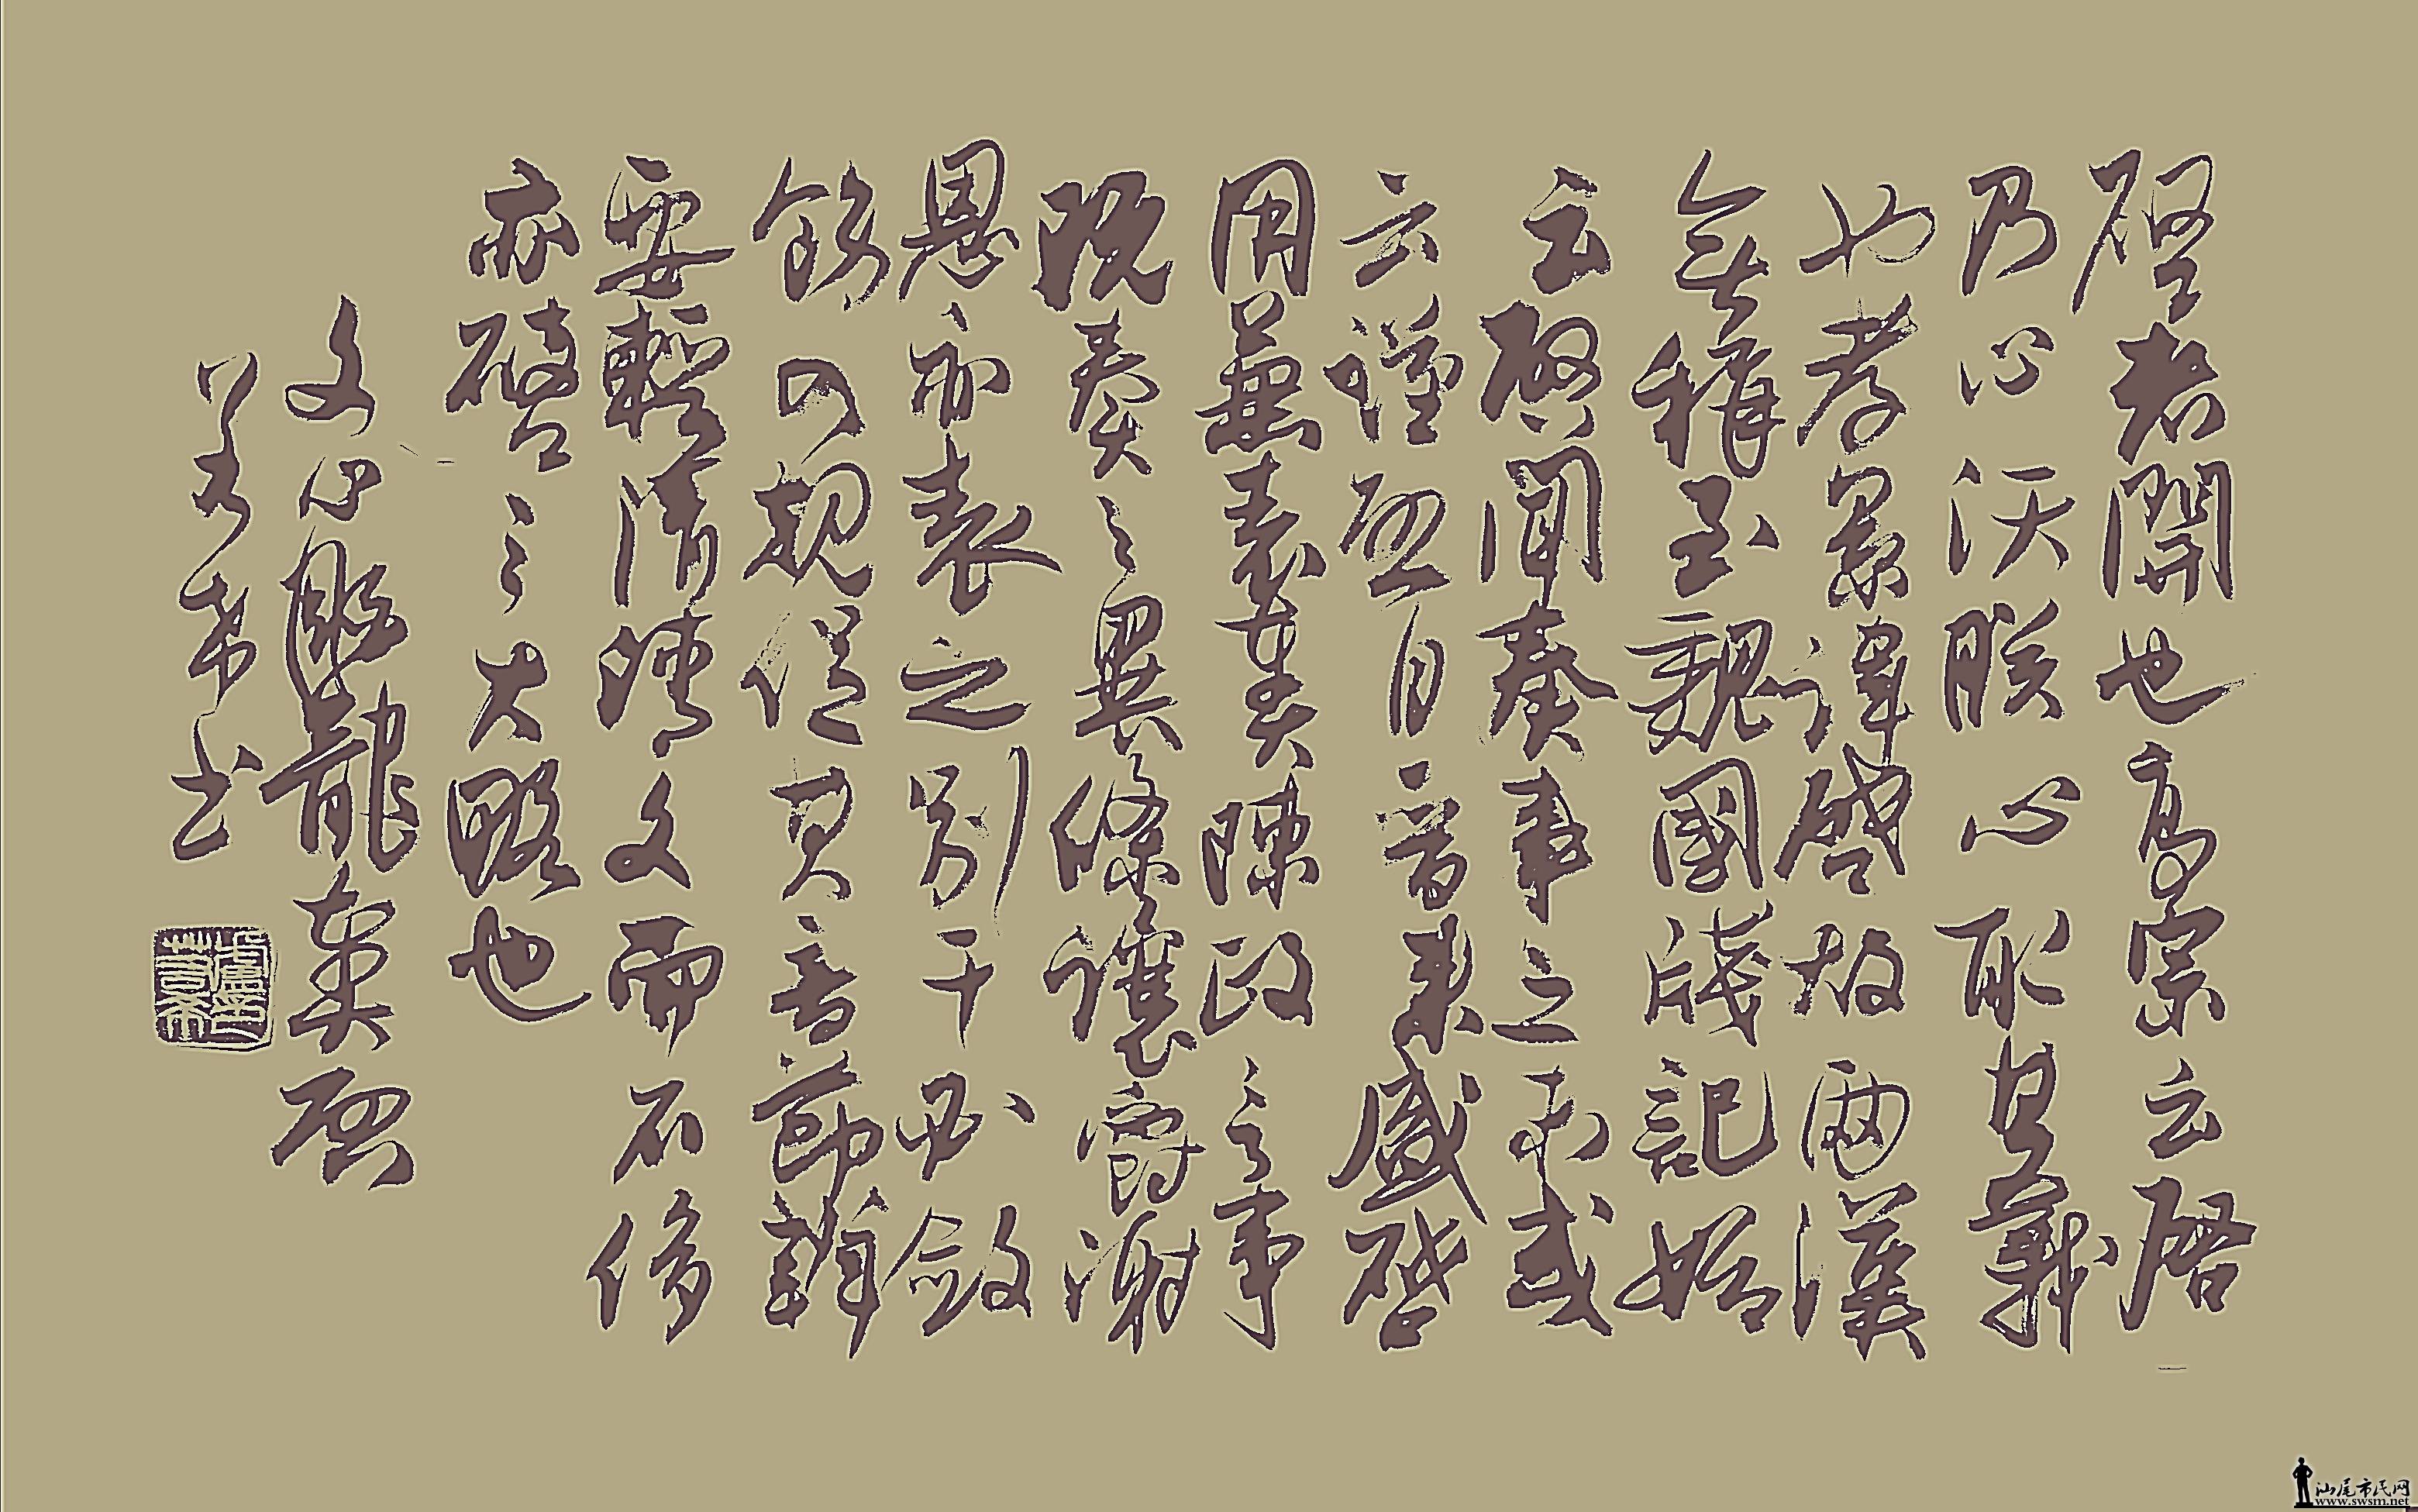 啓者開也高宗云啓
乃心沃朕心取其義
也孝景諱啓故兩漢
無稱至魏國牋記始
云啓聞奏事之末或
云謹啓自晉來盛啓
用兼表奏陳政言事
既奏之異條讓爵謝
恩亦表之別干必斂
飭入規促其音節辨
要輕清文而不侈
亦啓之大略也
文心雕龍奏啓
希書
汕尾市民网
www.swsm.net